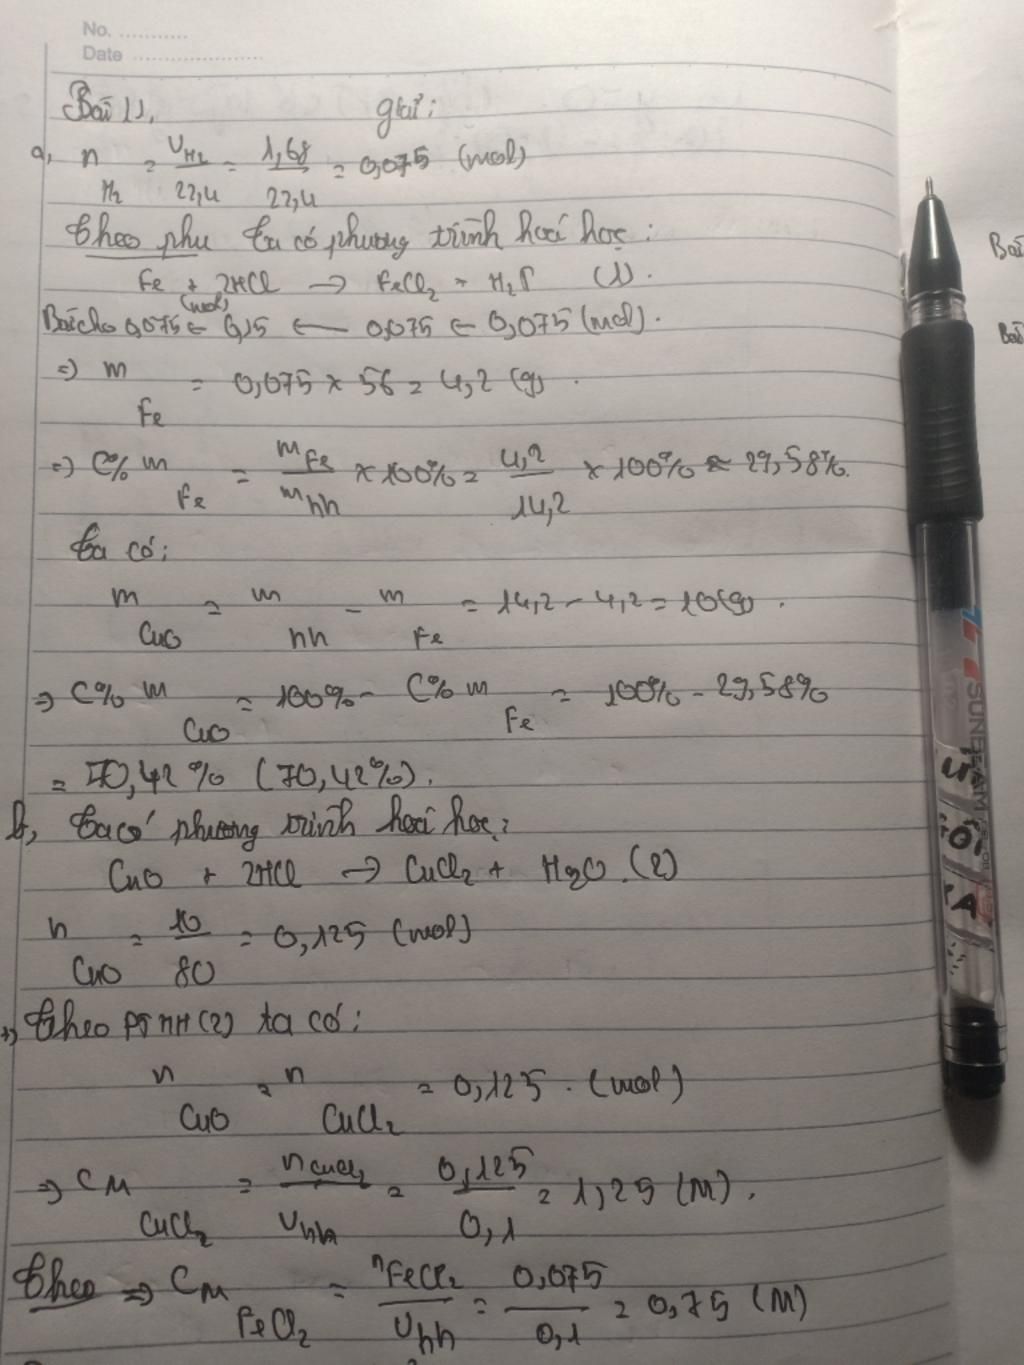 No. ...........
Date ......................
Bài 11,	giải:
a, n H2 = VH2/22,4 = 1,68/22,4 = 0,075 (mol)
Theo phu ta có phương trình hoá học:
Fe + 2HCl → FeCl2 + H2↑ (1).
Bài cho 0,075 (mol) ← 0,15 ← 0,075 ← 0,075 (mol).
=> m Fe = 0,075 x 56 = 4,2 (g).
=> C% m Fe = mFe/mhh x 100% = 4,2/14,2 x 100% ≈ 29,58%.
Ta có:
m CuO = m hh - m Fe = 14,2 - 4,2 = 10(g).
=> C% m CuO = 100% - C% m Fe = 100% - 29,58%
= 70,42% (70,42%).
b, Ta có phương trình hoá học:
CuO + 2HCl → CuCl2 + H2O. (2)
n CuO = 10/80 = 0,125 (mol)
=> Theo PTHH (2) ta có:
n CuO = n CuCl2 = 0,125. (mol)
=> CM CuCl2 = nCuCl2/Vhh = 0,125/0,1 = 1,25 (M).
Theo => CM FeCl2 = nFeCl2/Vhh = 0,075/0,1 = 0,75 (M)
Bài
Bài
SUNBEAM
TÔI